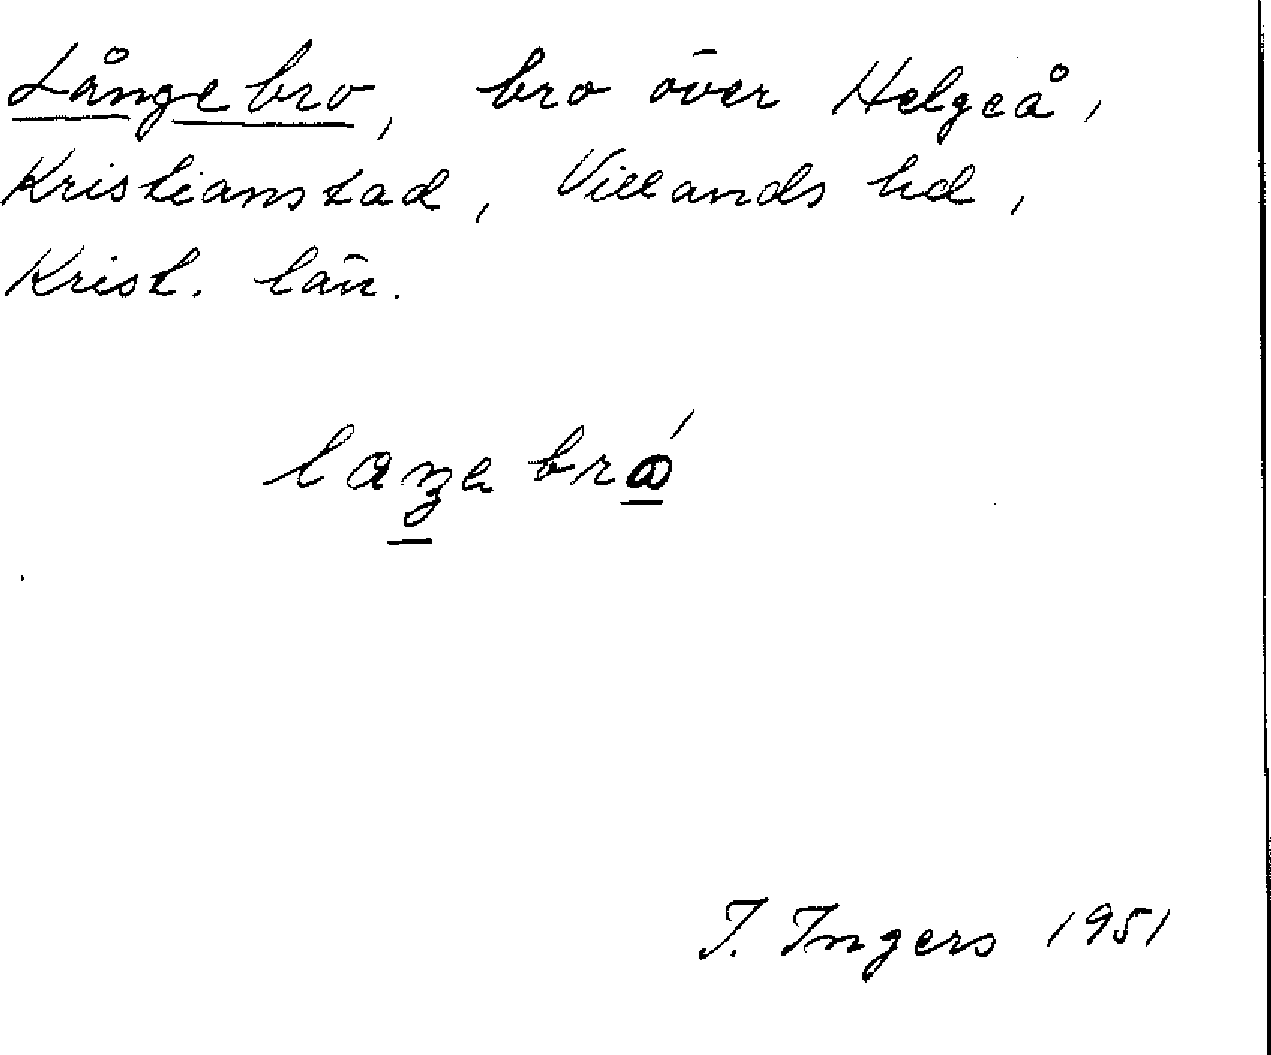 Långebro, bro över Helgeå,
Kristianstad, Villands hd,
Krist. län.
I. Ingers 1951